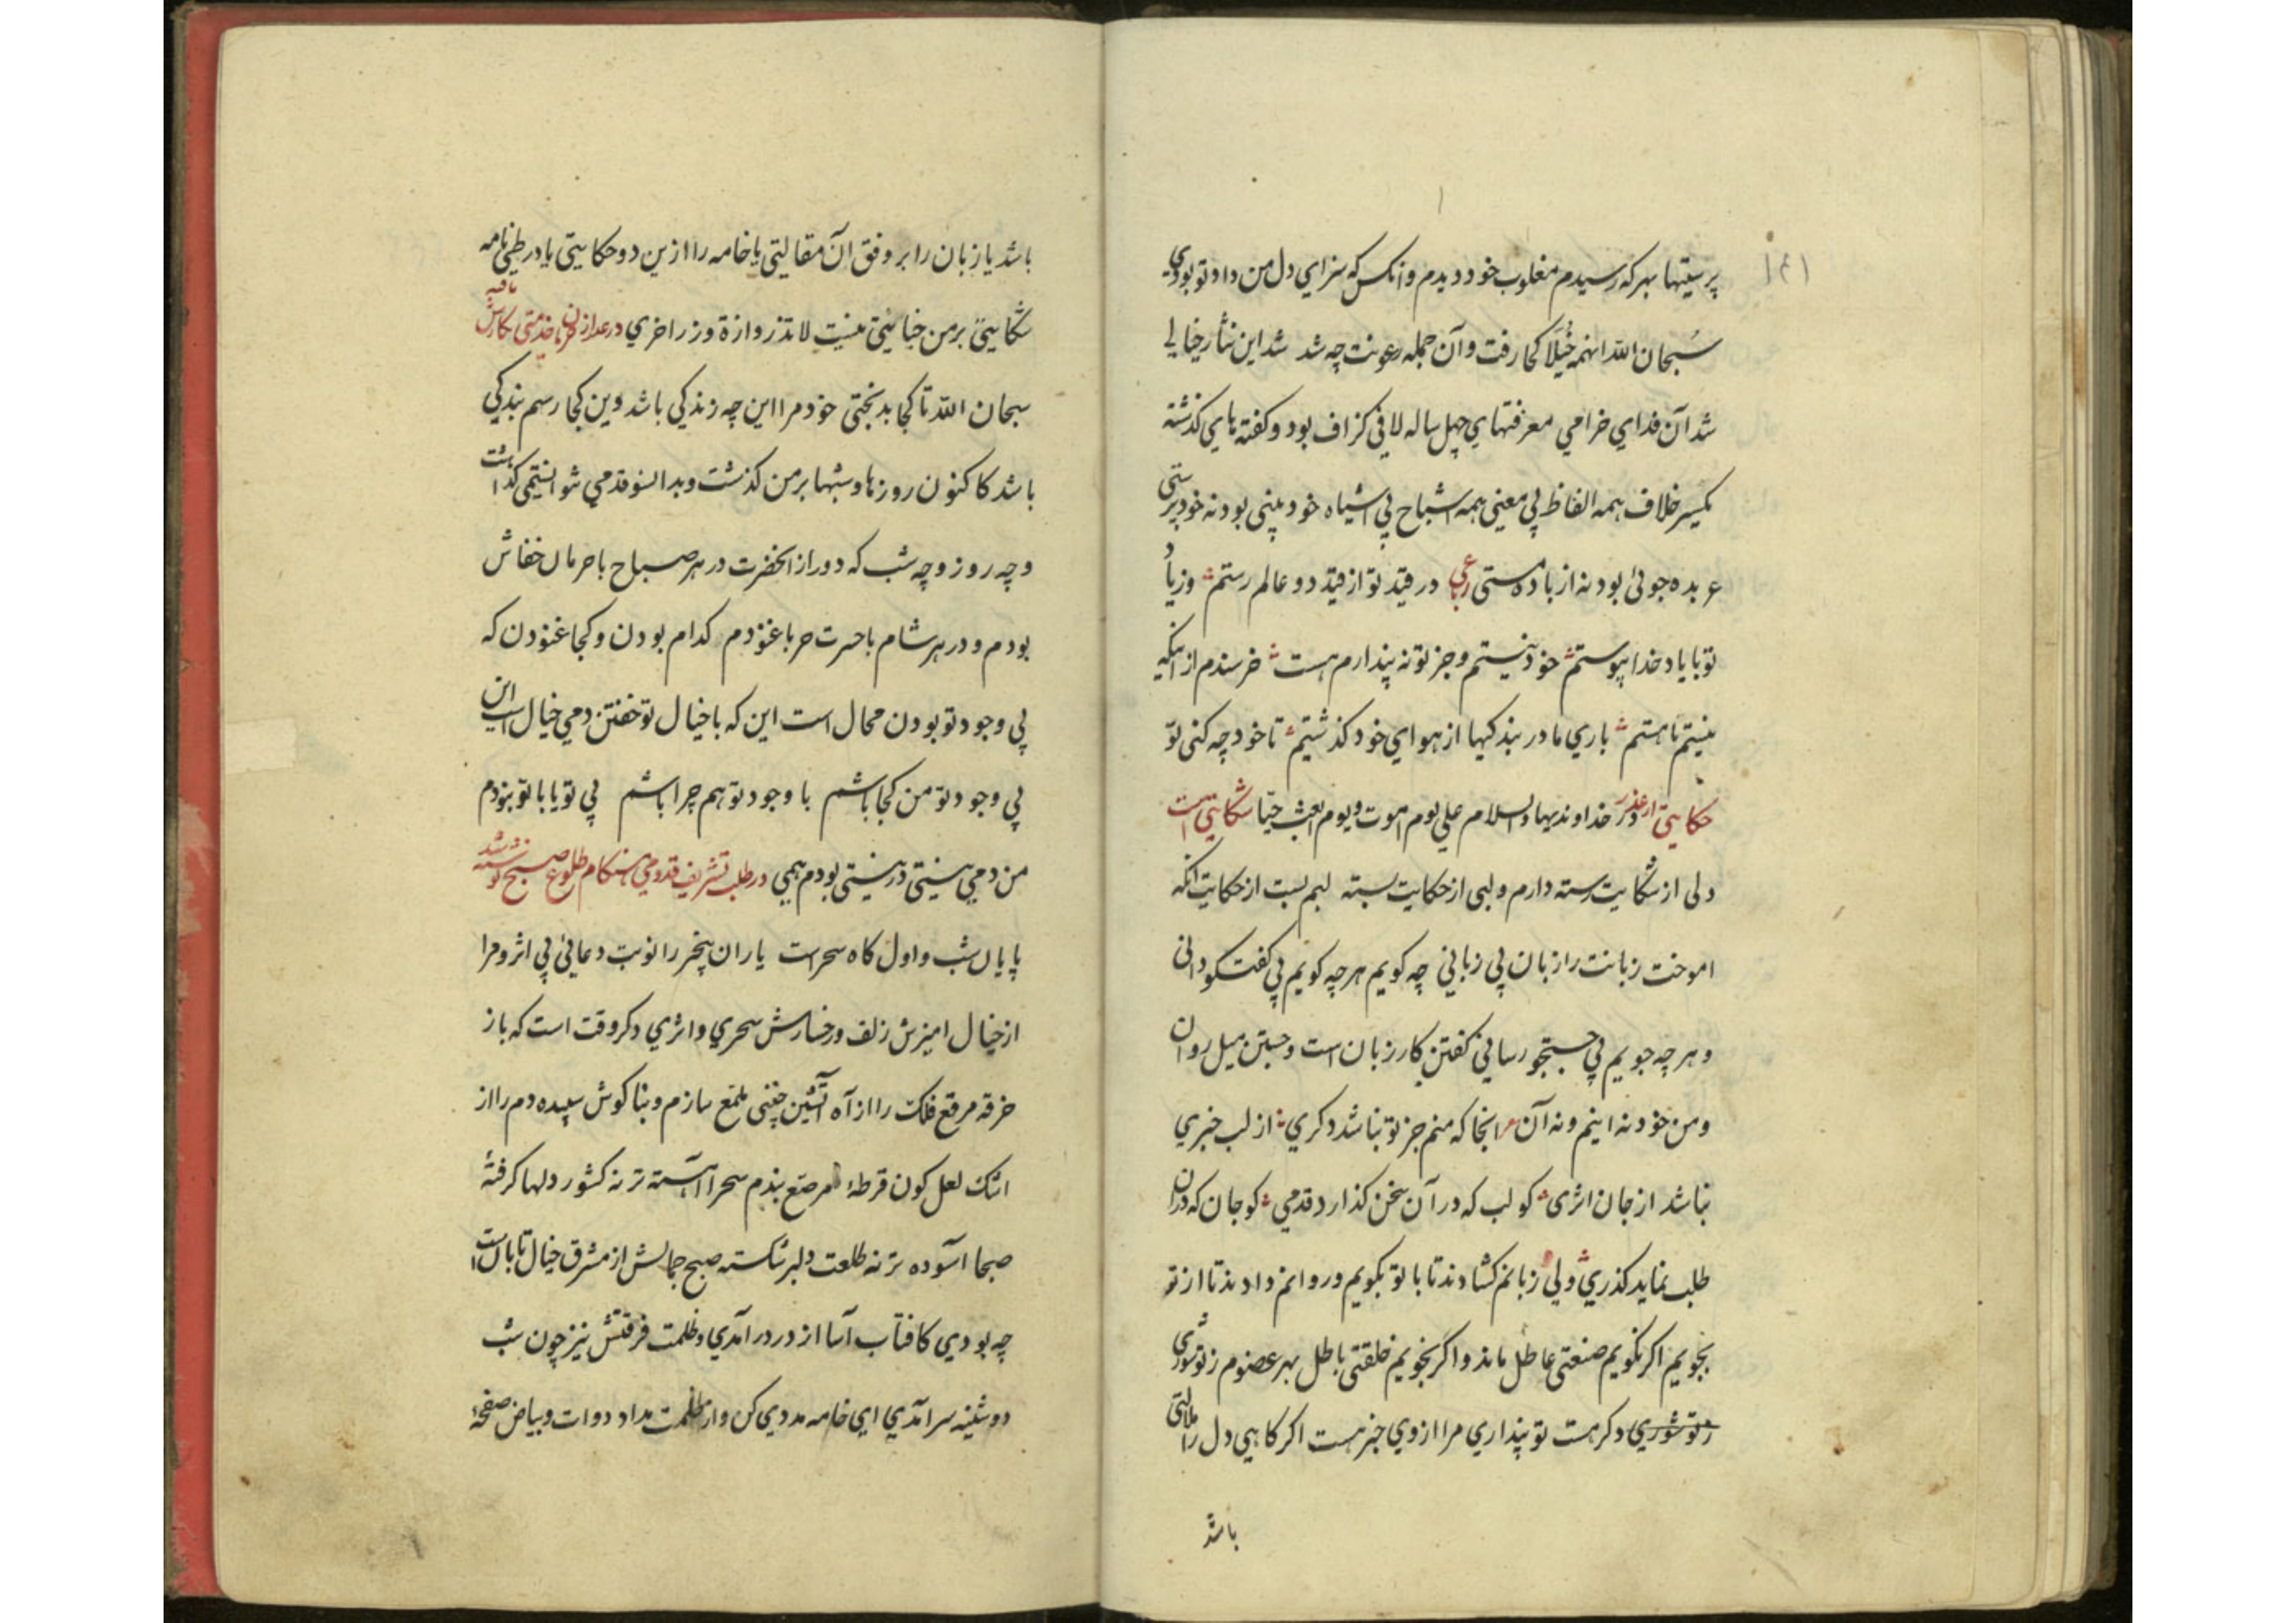 ١٤١
پرستیها بهرکه رسیدم مغلوب خود دیدم وانکس که سزاي دل من داد تو بودي
سُبحان الله انهمه خُیَلا کجا رفت وآن جمله رعونت چه شد شد این نثار خیالي
شد آن فداي خرامي معرفتهاي چهل ساله لافی کزاف بود وکفته هاي کذشته
یکسر خلاف همه الفاظ بي معنی همه اشباح بي اشیاه خود بینی بود نه خود پرستی
عربده جوئی بود نه از باده مستی رباعي در قید تو از قید دو عالم رستم وز یاد
تو با یاد خدا پیوستم خود نیستم وجز تو نه پندارم هست خرسندم از انکه
نیستم تا هستم باري ما در بندکیها از هواي خود کذشتیم تا خود چه کنی تو
در خداوندیها والسلام علي یوم اموت ویوم ابعث حیّا حکایتی از عذر شکایتی است
دلی از شکایت رسته دارم ولبی از حکایت بسته لبم بست از حکایت انکه
اموخت زبانت را زبان بي زباني چه کویم هرچه کویم بي کفت کو داني
وهرچه جویم بي جستجو رساني کفتن کار زبان است وجستن میل روان
ومن خود نه اینم ونه آن انجا که منم جز تو نباشد دکري از لب خبري
نباشد از جان اثری کو لب که در آن سخن کذارد قدمي کو جان که دران
طلب نماید کذري ولي زبانم کشادند تا با تو بکویم وروانم دادند تا از تو
بجویم اکر نکویم صنعتی عاطل ماند واکر نجویم خلقتی باطل بهر عضوم ز تو شوري
ز تو شوري دکر هست تو پنداري مرا از وي خبر هست اکر کاهي دل را ملالتی
باشد
باشد یا زبان را بر وفق آن مقالیتی یا خامه را ازین دو حکایتی یا در طيّ نامه
شکایتی بر من جنایتی نیست لا تزر وازرة وزر اخري در عذر از فرمان خدمتی نکارش یافته
سبحان الله تا کجا بدبختی خود مرا این چه زندکي باشد وین کجا رسم بندکي
باشد کاکنون روزها وشبها بر من کذشت وبدانسو قدمي نتوانستمی کذاشت
وچه روز وچه شب که دور از انحضرت در هر صباح با حرمان خفاش
بودم ودر هر شام با حسرت حربا غنودم کدام بودن وکجا غنودن که
بي وجود تو بودن محال است این که با خیال تو خفتن دمي خیال است این
بي وجود تو من کجا باشم با وجود تو هم چرا باشم بي تو یا با تو نبودم
من دمي نیستی در نیستی بودم همي در طلب تشریف قدومي هنکام طلوع صبح نوشته شد
پایان شب واول کاه سحر است یاران بیخبر را نوبت دعائی بي اثر ومرا
از خیال امیزش زلف ورخسارش سحري واثري دکر وقت است که باز
خرقه مرقع فلک را از آه آتشین چنی ملمّع سازم وبناکوش سپیده دم را از
اشک لعل کون قرطهٔ مرصّع بندم سحرا آهسته تر نه کشور دلها کرفتهٔ
صبحا آسوده تر نه طلعت دلبر شکسته صبح جمالش از مشرق خیال تابان است
چه بودي کافتاب آسا از در درآمدي وظلمت فرقتش نیز چون شب
دوشینه سرآمدي اي خامه مددي کن واز ظلمت مداد دوات وبیاض صفحهٔ